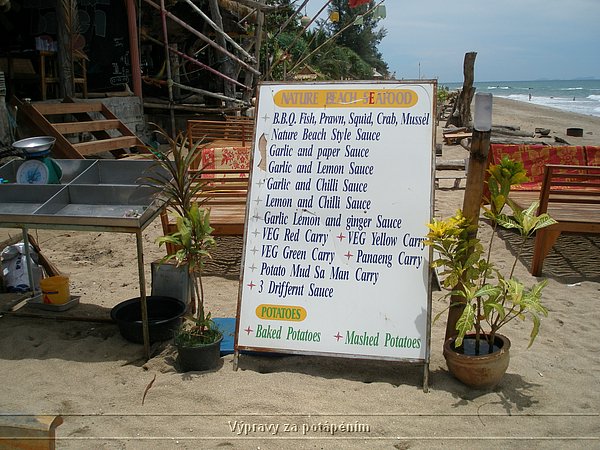 NATURE BEACH SEAFOOD
B.B.Q. Fish, Prawn, Squid, Crab, Mussel
Nature Beach Style Sauce
Garlic and paper Sauce
Garlic and Lemon Sauce
Garlic and Chilli Sauce
Lemon and Chilli Sauce
Garlic Lemon and ginger Sauce
VEG Red Carry VEG Yellow Carry
VEG Green Carry Panaeng Carry
Potato Mud Sa Man Carry
3 Driffernt Sauce
POTATOES
Baked Potatoes Mashed Potatoes
Výpravy za potápěním